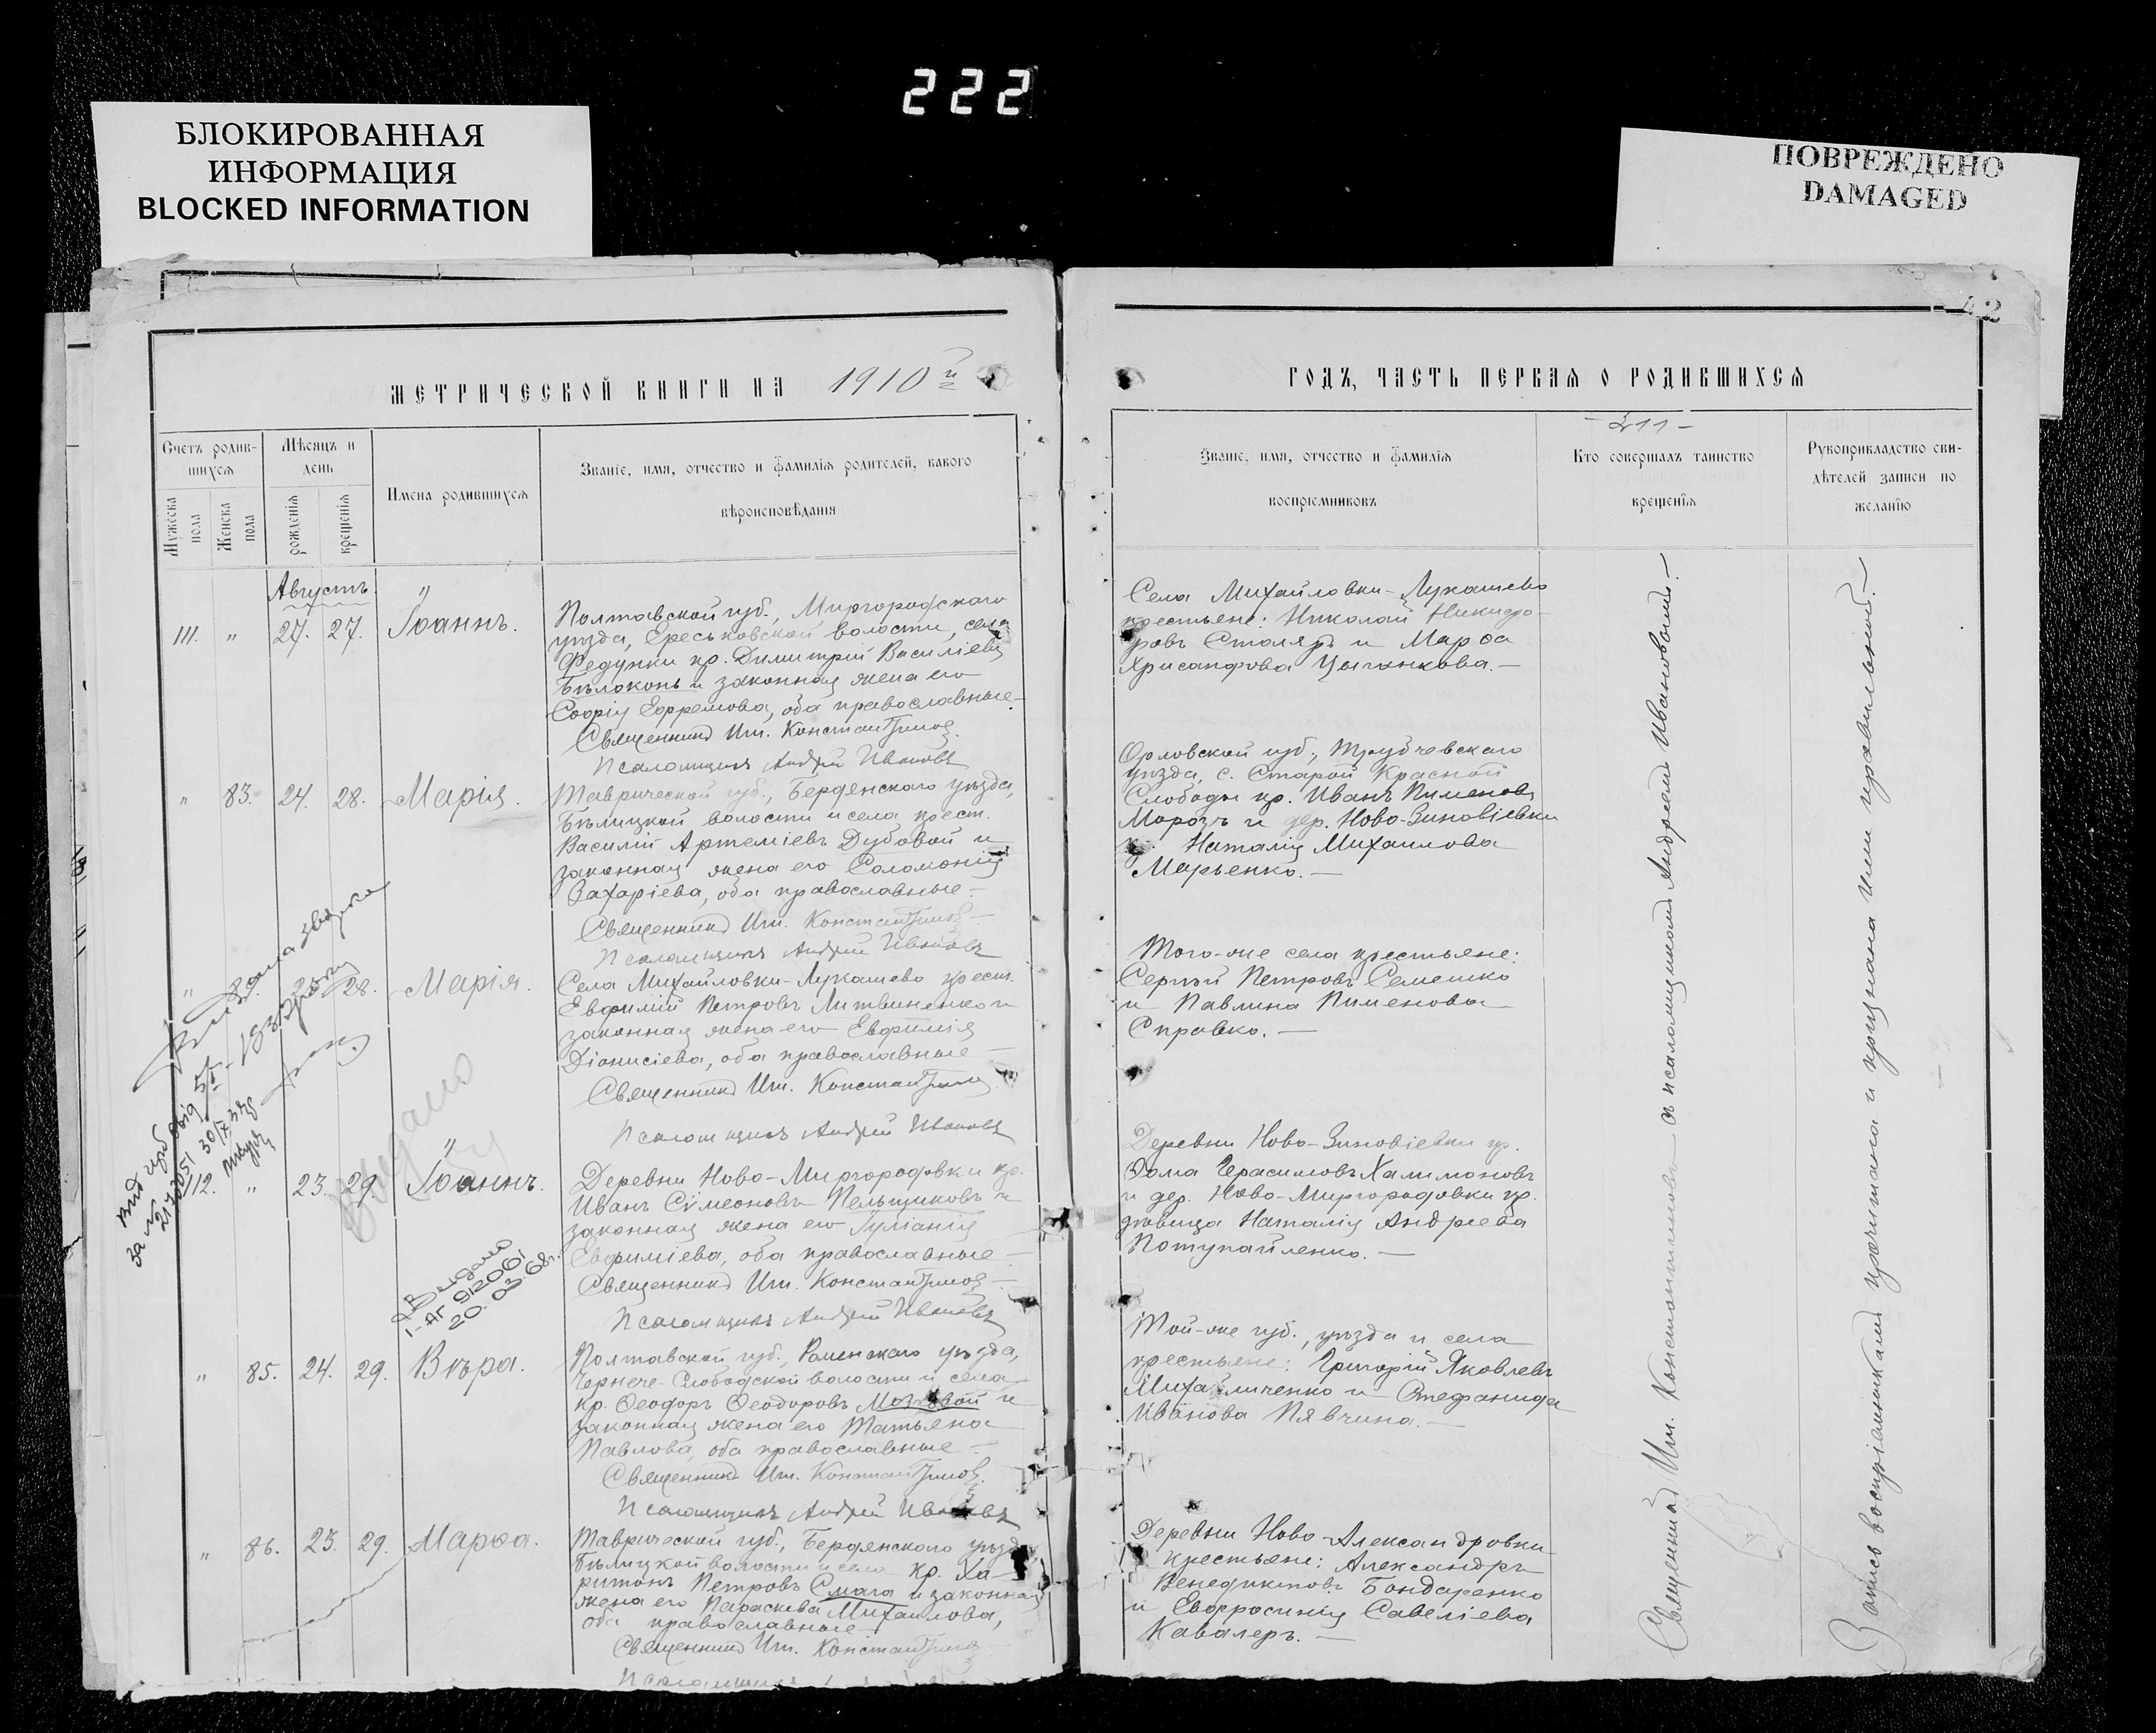 222
БЛОКИРОВАННАЯ
ИНФОРМАЦИЯ
BLOCKED INFORMATION
ПОВРЕЖДЕНО
DAMAGED
42
МЕТРИЧЕСКОЙ КНИГИ НА 1910й
Счетъ родив-
шихся
Мужеска
пола
Женска
пола
Мѣсяцъ и
день
рожденія
крещенія
Имена родившихся
Званіе, имя, отчество и фамилія родителей, какого
вѣроисповѣданія
Августъ
111. " 27. 27. Іоаннъ.
Полтавской губ., Миргородскаго
уѣзда, Ереськовской волости, села
Федунки кр. Димитрій Василіевъ
Бѣлоконь и законная жена его
Софія Ефремова, оба православные.
Священникъ Ил. Константинов.
Псаломщикъ Андрей Ивановъ
" 83. 24. 28. Марія.
Таврической губ., Бердянскаго уѣзда,
Бѣлицкой волости и села крест.
Василій Артеміевъ Дубовой и
законная жена его Соломонія
Захаріева, оба православные –
Священникъ Ил. Константинов –
Псаломщикъ Андрей Ивановъ
" 28. Марія.
Села Михайловки-Лукашево крест.
Евфимій Петровъ Литвиненко и
законная жена его Евфимія
Діонисіева, оба православные –
Священникъ Ил. Константинов
Псаломщикъ Андрей Ивановъ
Выдано
112. " 23. 29. Іоаннъ.
Деревни Ново-Миргородовки кр.
Иванъ Сѵмеоновъ Пельщиковъ и
законная жена его Іуліанія
Евфиміева, оба православные –
Священникъ Ил. Константинов –
Псаломщикъ Андрей Ивановъ
Выдано
I-АГ 912061
20.03.68г.
" 85. 24. 29. Вѣра.
Полтавской губ., Роменскаго уѣзда,
Чернече-Слободской волости и села
кр. Ѳеодоръ Ѳеодоровъ Мозговой и
законная жена его Татьяна
Павлова, оба православные –
Священникъ Ил. Константинов.
Псаломщикъ Андрей Ивановъ
" 86. 23. 29. Марѳа.
Таврической губ., Бердянскаго уѣзда
Бѣлицкой волости и села кр. Ха-
ритонъ Петровъ Смага и законная
жена его Параскева Михаилова,
оба православные –
Священникъ Ил. Константинов
Псаломщикъ
ГОДЪ, ЧАСТЬ ПЕРВАЯ О РОДИВШИХСЯ
– 211 –
Званіе, имя, отчество и фамилія
воспріемниковъ
Кто совершалъ таинство
крещенія
Рукоприкладство сви-
дѣтелей записи по
желанію
Села Михайловки-Лукашево
крестьяне: Николай Никифо-
ровъ Столяръ и Марѳа
Хрисанфова Цыганкова. –
Орловской губ., Трубчевскаго
уѣзда, с. Старой Красной
Слободы кр. Иванъ Пименовъ
Морозъ и дер. Ново-Зиновіевки
Наталія Михаилова
Марьенко. –
Того-же села крестьяне:
Сергѣй Петровъ Семешко
и Павлина Пименова
Справко. –
Деревни Ново-Зиновіевки кр.
Ѳома Герасимовъ Халимоновъ
и дер. Ново-Миргородовки кр.
дѣвица Наталія Андреева
Потупайленко. –
Той-же губ., уѣзда и села
крестьяне: Григорій Яковлевъ
Михайличенко и Стефанида
Иванова Пявчина. –
Деревни Ново-Александровки
крестьяне: Александръ
Венедиктовъ Бондаренко
и Евфросинія Савеліева
Кавалеръ. –
Священникъ Ил. Константиновъ съ псаломщикомъ Андреемъ Ивановымъ. –
Запись воспріемниками прочитана и признана ими правильной. –